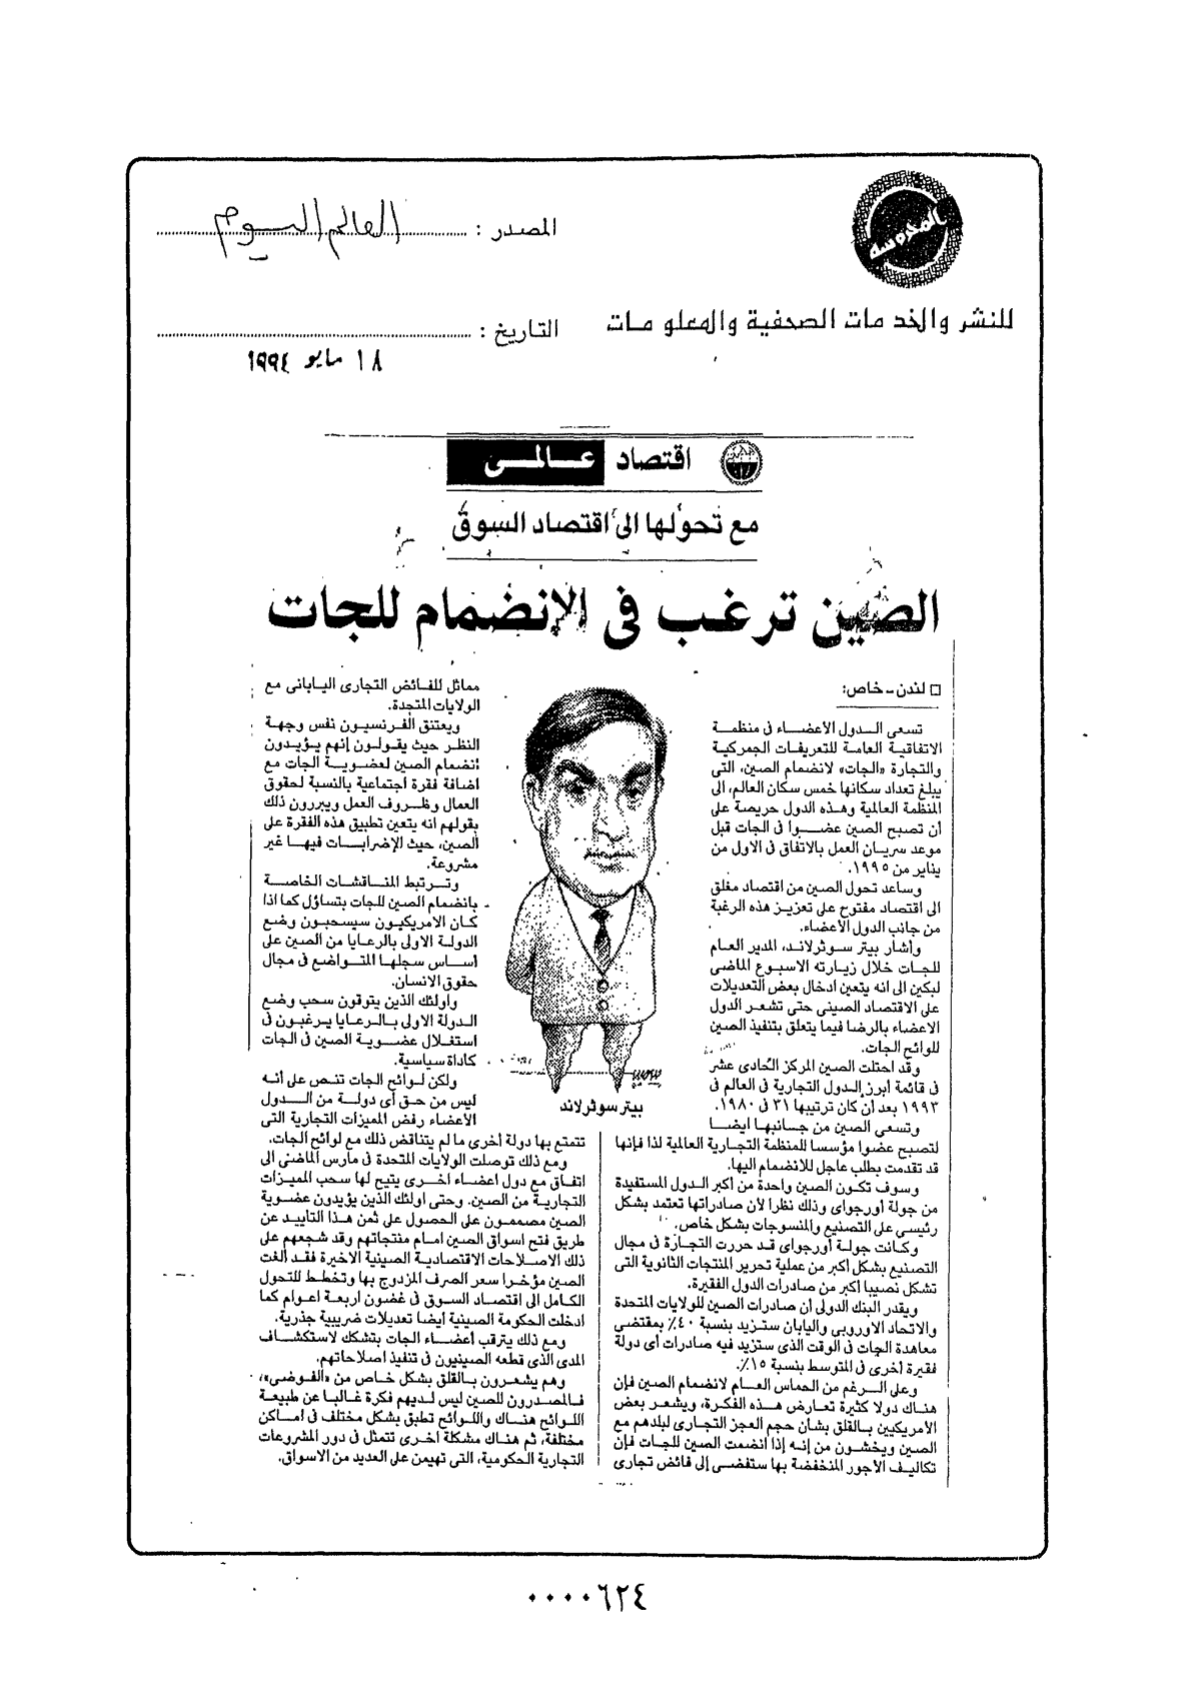 المحروسة
المصدر : العالم اليوم
للنشر والخدمات الصحفية والمعلومات
التاريخ :
١٨ مايو ١٩٩٤
اقتصاد عالمى
مع تحولها الى اقتصاد السوق
الصين ترغب فى الإنضمام للجات
□ لندن - خاص:
تسعى الدول الأعضاء فى منظمة
الاتفاقية العامة للتعريفات الجمركية
والتجارة «الجات» لانضمام الصين، التى
يبلغ تعداد سكانها خمس سكان العالم، الى
المنظمة العالمية وهذه الدول حريصة على
أن تصبح الصين عضوا فى الجات قبل
موعد سريان العمل بالاتفاق فى الاول من
يناير من ١٩٩٥.
وساعد تحول الصين من اقتصاد مغلق
الى اقتصاد مفتوح على تعزيز هذه الرغبة
من جانب الدول الأعضاء.
وأشار بيتر سوثرلاند، المدير العام
للجات خلال زيارته الاسبوع الماضى
لبكين الى انه يتعين ادخال بعض التعديلات
على الاقتصاد الصينى حتى تشعر الدول
الاعضاء بالرضا فيما يتعلق بتنفيذ الصين
للوائح الجات.
وقد احتلت الصين المركز الحادى عشر
فى قائمة أبرز الدول التجارية فى العالم فى
١٩٩٣ بعد أن كان ترتيبها ٣١ فى ١٩٨٠.
وتسعى الصين من جانبها ايضا
لتصبح عضوا مؤسسا للمنظمة التجارية العالمية لذا فإنها
قد تقدمت بطلب عاجل للانضمام اليها.
وسوف تكون الصين واحدة من أكبر الدول المستفيدة
من جولة أورجواى وذلك نظرا لأن صادراتها تعتمد بشكل
رئيسى على التصنيع والمنسوجات بشكل خاص.
وكانت جولة أورجواى قد حررت التجارة فى مجال
التصنيع بشكل اكبر من عملية تحرير المنتجات الثانوية التى
تشكل نصيبا اكبر من صادرات الدول الفقيرة.
ويقدر البنك الدولى أن صادرات الصين للولايات المتحدة
والاتحاد الاوروبى واليابان ستزيد بنسبة ٤٠٪ بمقتضى
معاهدة الجات فى الوقت الذى ستزيد فيه صادرات أى دولة
فقيرة أخرى فى المتوسط بنسبة ١٥٪.
وعلى الرغم من الحماس العام لانضمام الصين فإن
هناك دولا كثيرة تعارض هذه الفكرة، ويشعر بعض
الأمريكيين بالقلق بشأن حجم العجز التجارى لبلدهم مع
الصين ويخشون من إنه إذا انضمت الصين للجات فإن
تكاليف الأجور المنخفضة بها ستفضى إلى فائض تجارى
بيتر سوثرلاند
مماثل للفائض التجارى اليابانى مع
الولايات المتحدة.
ويعتنق الفرنسيون نفس وجهة
النظر حيث يقولون إنهم يؤيدون
انضمام الصين لعضوية الجات مع
اضافة فقرة اجتماعية بالنسبة لحقوق
العمال وظروف العمل ويبررون ذلك
بقولهم انه يتعين تطبيق هذه الفقرة على
الصين، حيث الإضرابات فيها غير
مشروعة.
وترتبط المناقشات الخاصة
بانضمام الصين للجات بتساؤل كما اذا
كان الامريكيون سيسحبون وضع
الدولة الاولى بالرعايا من الصين على
أساس سجلها المتواضع فى مجال
حقوق الانسان.
وأولئك الذين يتوقون سحب وضع
الدولة الاولى بالرعايا يرغبون فى
استغلال عضوية الصين فى الجات
كاداة سياسية.
ولكن لوائح الجات تنص على أنه
ليس من حق أى دولة من الدول
الأعضاء رفض الميزات التجارية التى
تتمتع بها دولة أخرى ما لم يتناقض ذلك مع لوائح الجات.
ومع ذلك توصلت الولايات المتحدة فى مارس الماضى الى
اتفاق مع دول اعضاء اخرى يتيح لها سحب الميزات
التجارية من الصين. وحتى اولئك الذين يؤيدون عضوية
الصين مصممون على الحصول على ثمن هذا التأييد عن
طريق فتح اسواق الصين امام منتجاتهم وقد شجعهم على
ذلك الاصلاحات الاقتصادية الصينية الاخيرة فقد الغت
الصين مؤخرا سعر الصرف المزدوج بها وتخطط للتحول
الكامل الى اقتصاد السوق فى غضون اربعة اعوام كما
ادخلت الحكومة الصينية أيضا تعديلات ضريبية جذرية.
ومع ذلك يترقب أعضاء الجات بتشكك لاستكشاف
المدى الذى قطعه الصينيون فى تنفيذ اصلاحاتهم.
وهم يشعرون بالقلق بشكل خاص من «الفوضى»،
فالمصدرون للصين ليس لديهم فكرة غالبا عن طبيعة
اللوائح هناك واللوائح تطبق بشكل مختلف فى اماكن
مختلفة، ثم هناك مشكلة اخرى تتمثل فى دور المشروعات
التجارية الحكومية، التى تهيمن على العديد من الاسواق.
٠٠٠٠٦٢٤